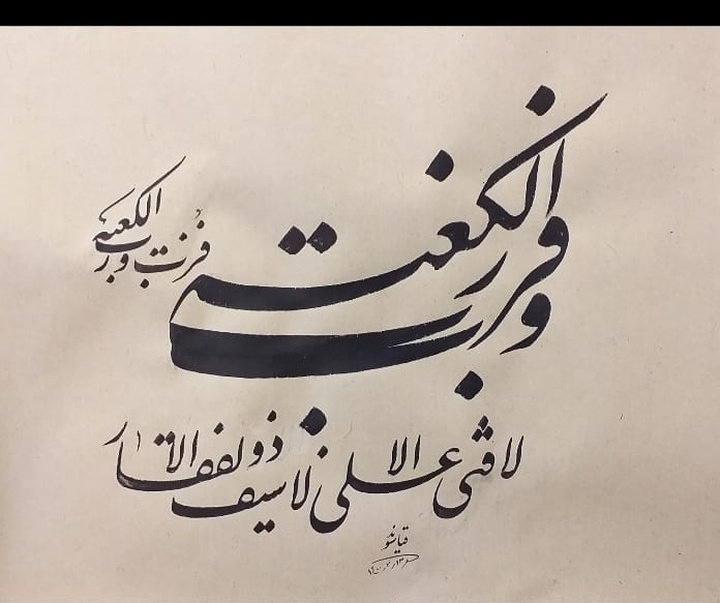 فزت و رب الکعبة
فزت و رب الکعبة
لا فتی الا علی لا سیف الا ذوالفقار